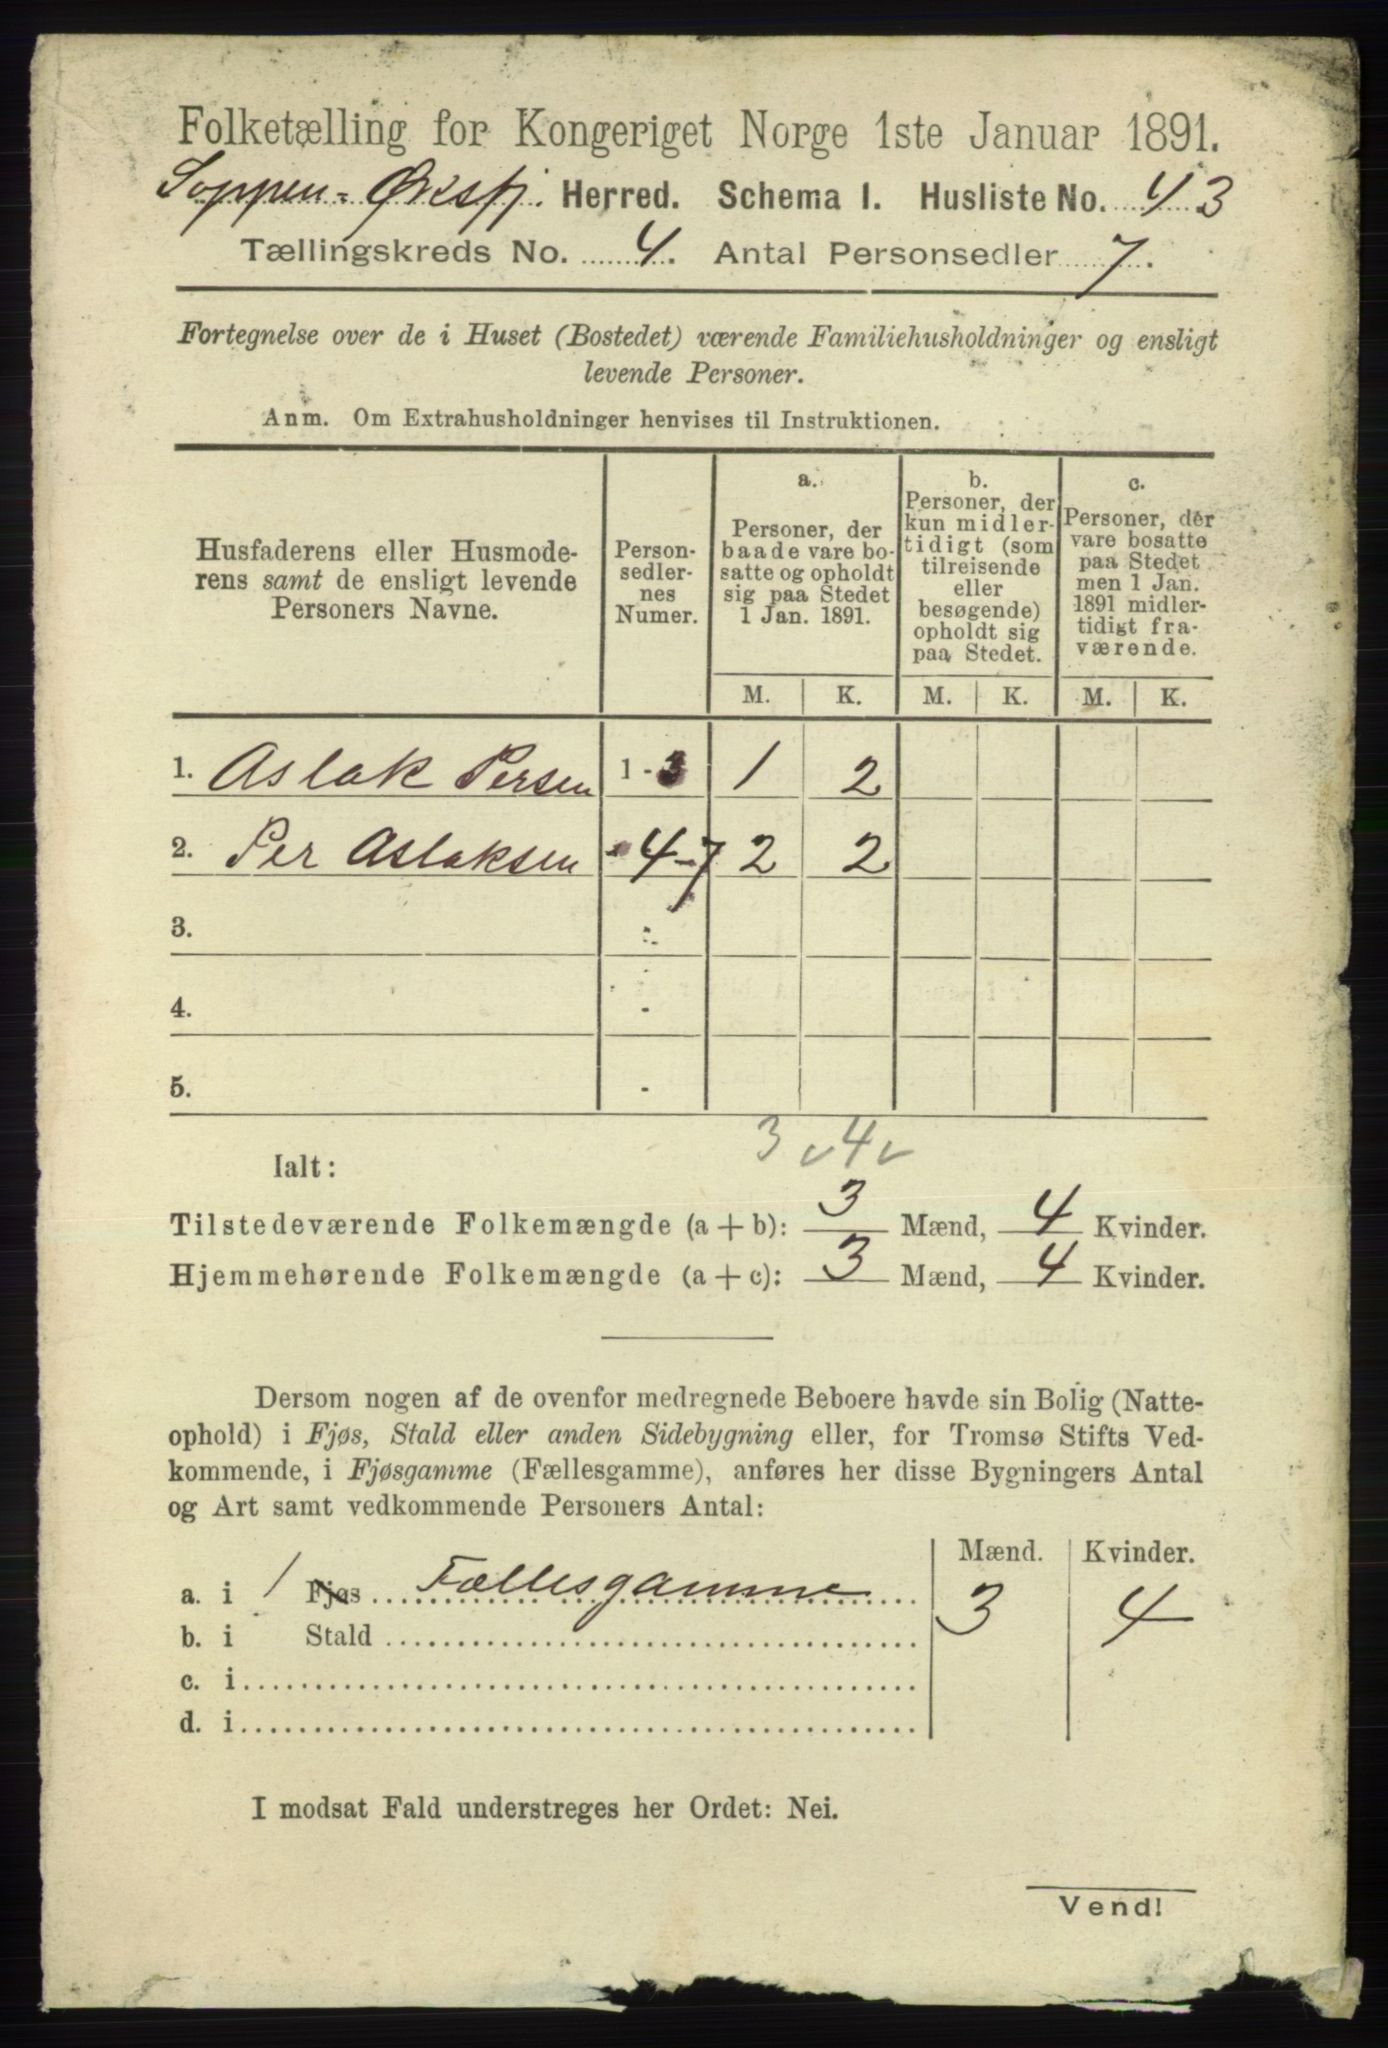 Folketælling for Kongeriget Norge 1ste Januar 1891.
Loppen-Øksfj. Herred. Schema I. Husliste No. 43
Tællingskreds No. 4. Antal Personsedler 7.
Fortegnelse over de i Huset (Bostedet) værende Familiehusholdninger og ensligt
levende Personer.
Anm. Om Extrahusholdninger henvises til Instruktionen.
Husfaderens eller Husmode-
rens samt de ensligt levende
Personers Navne.
Person-
sedler-
nes
Numer.
a.
Personer, der
baade vare bo-
satte og opholdt
sig paa Stedet
1 Jan. 1891.
b.
Personer, der
kun midler-
tidigt (som
tilreisende
eller
besøgende)
opholdt sig
paa Stedet.
c.
Personer, der
vare bosatte
paa Stedet
men 1 Jan.
1891 midler-
tidigt fra-
værende.
M. K. M. K. M. K.
1. Aslak Persen 1-3 1 2
2. Per Aslaksen 4-7 2 2
3. -
4. -
5. -
3 4
Ialt:
Tilstedeværende Folkemængde (a + b): 3 Mænd, 4 Kvinder.
Hjemmehørende Folkemængde (a + c): 3 Mænd, 4 Kvinder.
Dersom nogen af de ovenfor medregnede Beboere havde sin Bolig (Natte-
ophold) i Fjøs, Stald eller anden Sidebygning eller, for Tromsø Stifts Ved-
kommende, i Fjøsgamme (Fællesgamme), anføres her disse Bygningers Antal
og Art samt vedkommende Personers Antal:
Mænd. Kvinder.
a. i 1 Fjøs Fællesgamme 3 4
b. i Stald
c. i
d. i
I modsat Fald understreges her Ordet: Nei.
Vend!